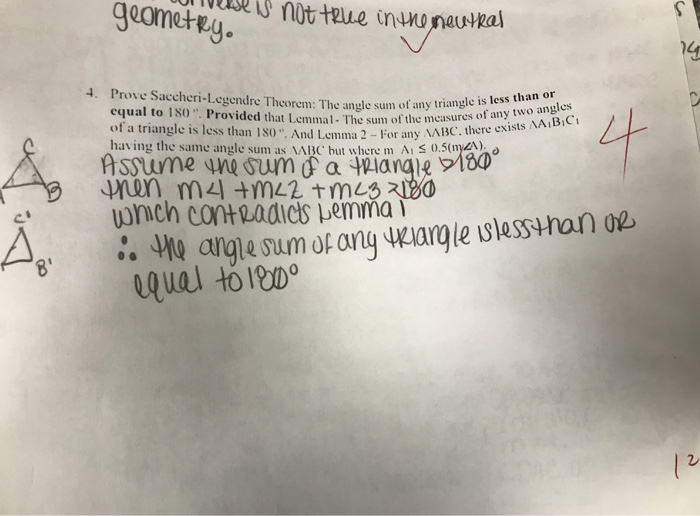 is not true in the neutral
geometry.
4. Prove Saccheri-Legendre Theorem: The angle sum of any triangle is less than or
equal to 180°. Provided that Lemma1- The sum of the measures of any two angles
of a triangle is less than 180°. And Lemma 2 – For any ΔABC, there exists ΔA1B1C1
having the same angle sum as ΔABC but where m A1 ≤ 0.5(m∠A).
4
Assume the sum of a triangle >180°
then m<1 +m<2 +m<3 >180
which contradicts Lemma 1
∴ the angle sum of any triangle is less than or
equal to 180°
C
B
C'
B'
12